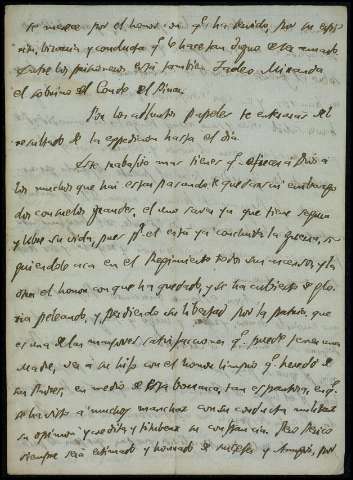 se merece por el honor con q.e ha servido, por su espi-
ritu, bizarria y conducta q.e lo hacen tan digno de ser amado
Entre los prisioneros está tambien Tadeo Miranda
el sobrino del Conde del Pinar.
Por los adjuntos papeles te enterarás del
resultado de la expedicion hasta el dia.
Este trabajo mas tienes q.e ofrecer á Dios á
los muchos que has estan pasando, te quedaran sin embargo
dos consuelos grandes, el uno saver ya que tiene segura
y libre su vida, pues p.a el está ya concluida la guerra, si-
guiendole aca en el Regimiento todos sus ascensos, y la
otra el honor con que ha quedado, y se ha cubierto de glo-
ria peleando, y perdiendo su libertad por la patria, que
es una de las mayores satisfacciones q.e puede tener una
Madre, ver á su hijo con el honor limpio q.e heredó de
sus Padres, en medio de esta borrasca, tan espantosa, en q.e
se ha visto á muchos manchar con su conducta
su opinion y credito y titubear su constancia. Pero Perico
siempre será estimado y honrado de sus Gefes y Amigos, por